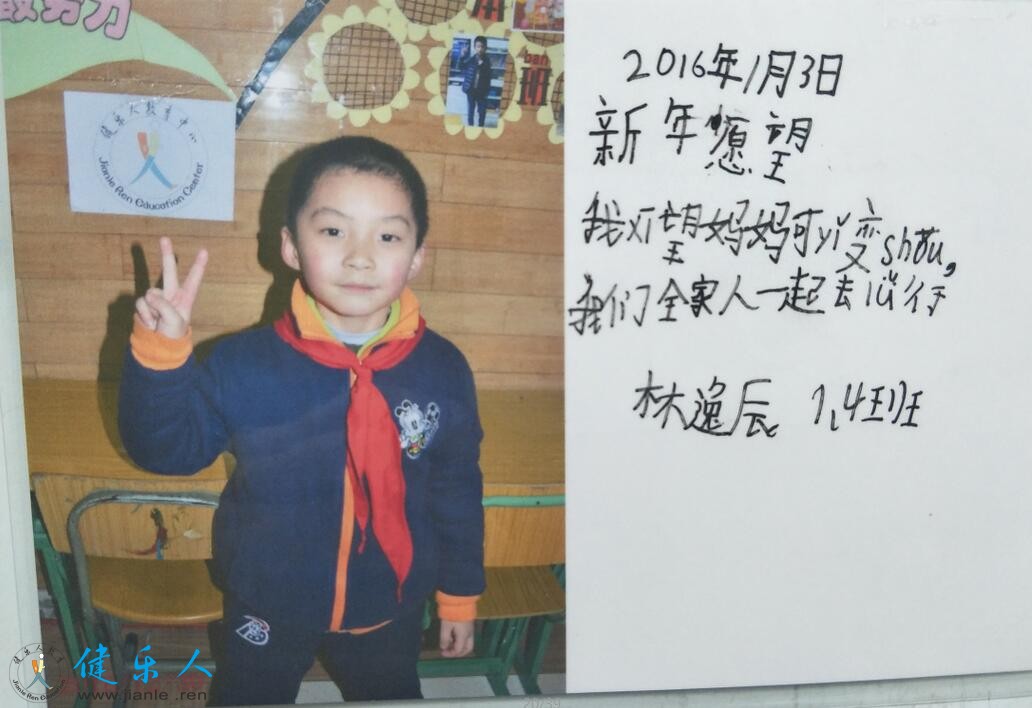 健乐人教育中心
Jianle Ren Education Center
ban
班
2016年1月3日
新年愿望
我xī望妈妈可yǐ变shòu,
我们全家人一起去
林逸辰 1.4班
健乐人
www.jianle.ren
20/39